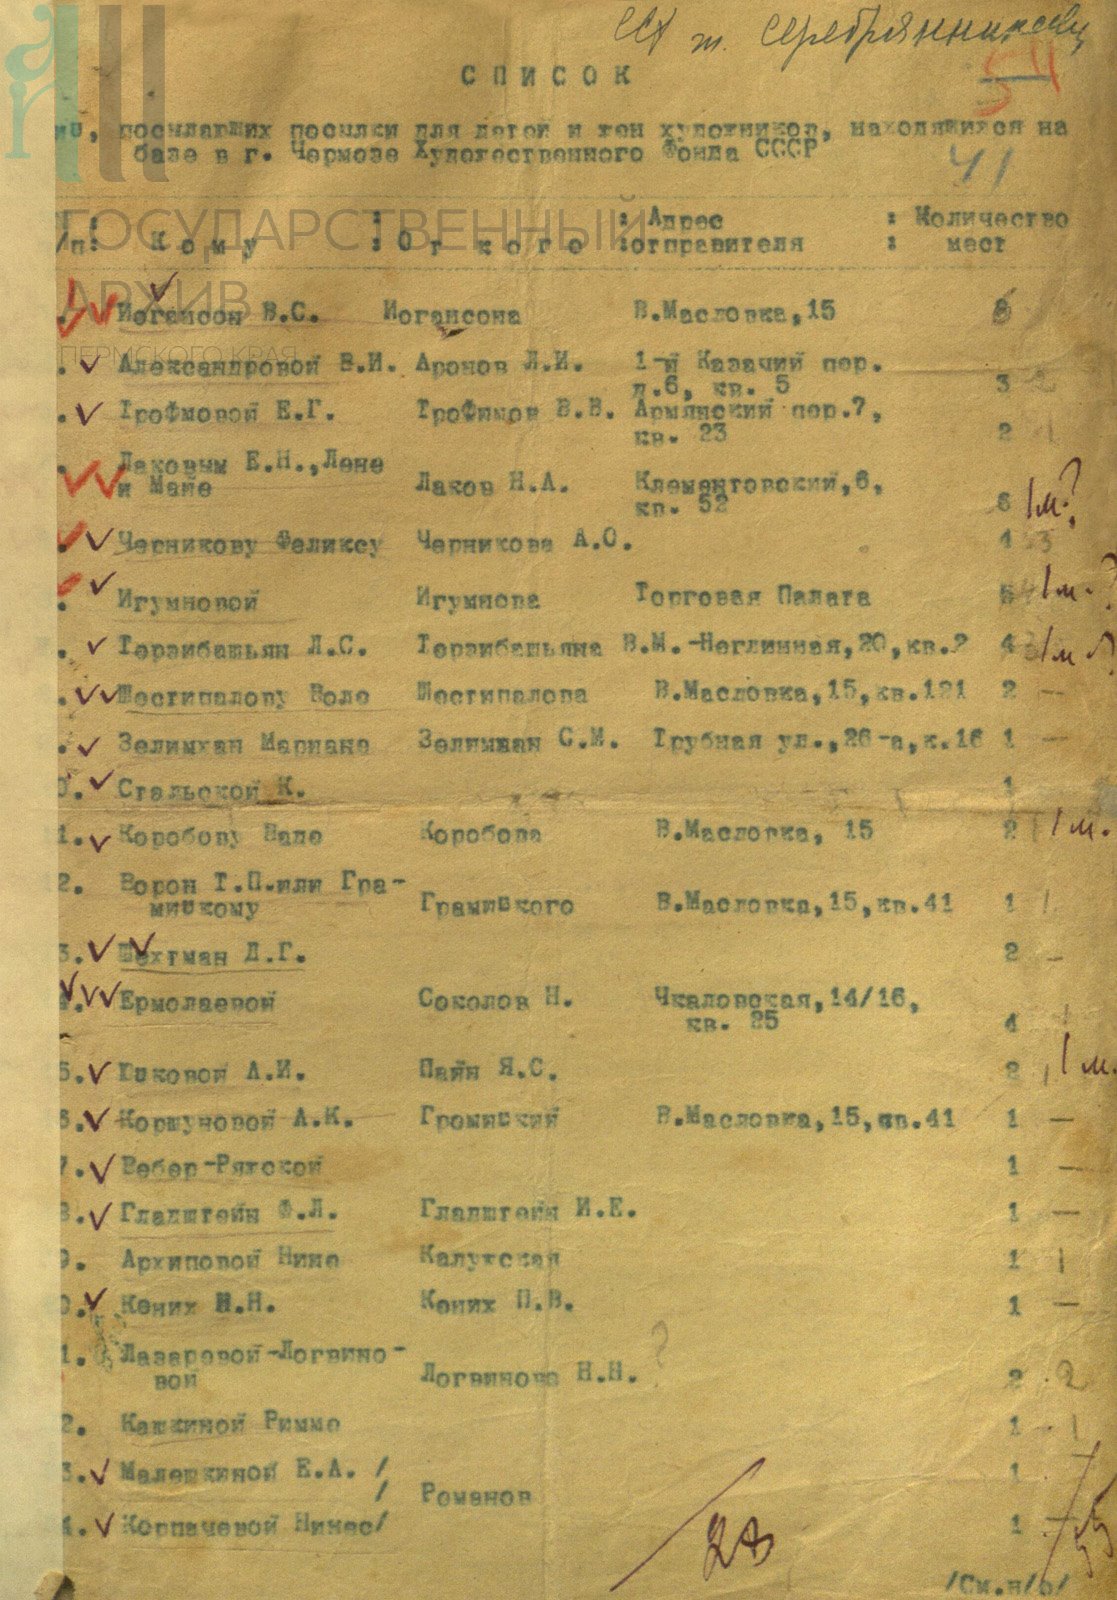 т. Серебрянникову
511
СПИСОК
лиц, посылавших посылки для детей и жен художников, находящихся на
базе в г. Чермозе Художественного Фонда СССР
41
ГОСУДАРСТВЕННЫЙ
АРХИВ
ПЕРМСКОГО КРАЯ
/п: Кому : От кого : Адрес отправителя : Количество мест
Иогансон В.С. Иогансона В.Масловка,15 8
Александровой В.И. Аронов Л.И. 1-й Казачий пер.
д.6, кв. 5 3 2
Трофмовой Е.Г. Трофимов В.В. Армянский пер.7,
кв. 23 2 1
Лаковым Е.Н.,Лене
и Майе Лаков Н.А. Клементовский,6,
кв. 52 6 1м.?
Черникову Феликсу Черникова А.О. 4 3
Игумновой Игумнова Торговая Палата 5 4 1м.?
Терзибашьян Л.С. Терзибашьяна В.М.-Неглинная,20,кв.2 4 3 1м?
Шестипалову Воле Шестипалова В.Масловка,15,кв.121 2 —
Зелимхан Мариане Зелимхан С.М. Трубная ул.,26-а,к.16 1 —
0. Стальской К. 1
1. Коробову Вале Коробова В.Масловка, 15 2 1м.
2. Ворон Т.П.или Гра-
мицкому Грамицкого В.Масловка,15,кв.41 1 1.
3. Шехтман Д.Г. 2 —
4. Ермолаевой Соколов Н. Чкаловская,14/16,
кв. 25 4 1
5. Цаковой А.И. Пайн Я.С. 2 1м.
6. Коршуновой А.К. Громицкий В.Масловка,15,кв.41 1 —
7. Вебер-Ряжской 1 —
8. Гладштейн Ф.Л. Гладштейн И.Е. 1 —
9. Архиповой Нине Калужская 1 1
0. Кених Н.Н. Кених П.В. 1 —
1. Лазаревой-Логвино-
вой Логвинова Н.Н. ? 2 2
2. Кашкиной Римме 1 - 1
3. Малешкиной Е.А. / 1
/ Романов
4. Корпачевой Нинес/ 1 —
/См.н/о/